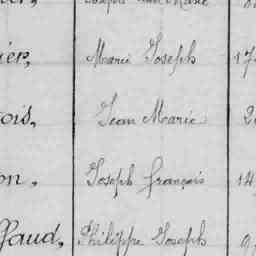 Joseph Jean Marie
ier, Marie Joseph 17
ois, Jean Marie 2
on, Joseph François 14
ffaud, Philippe Joseph 9